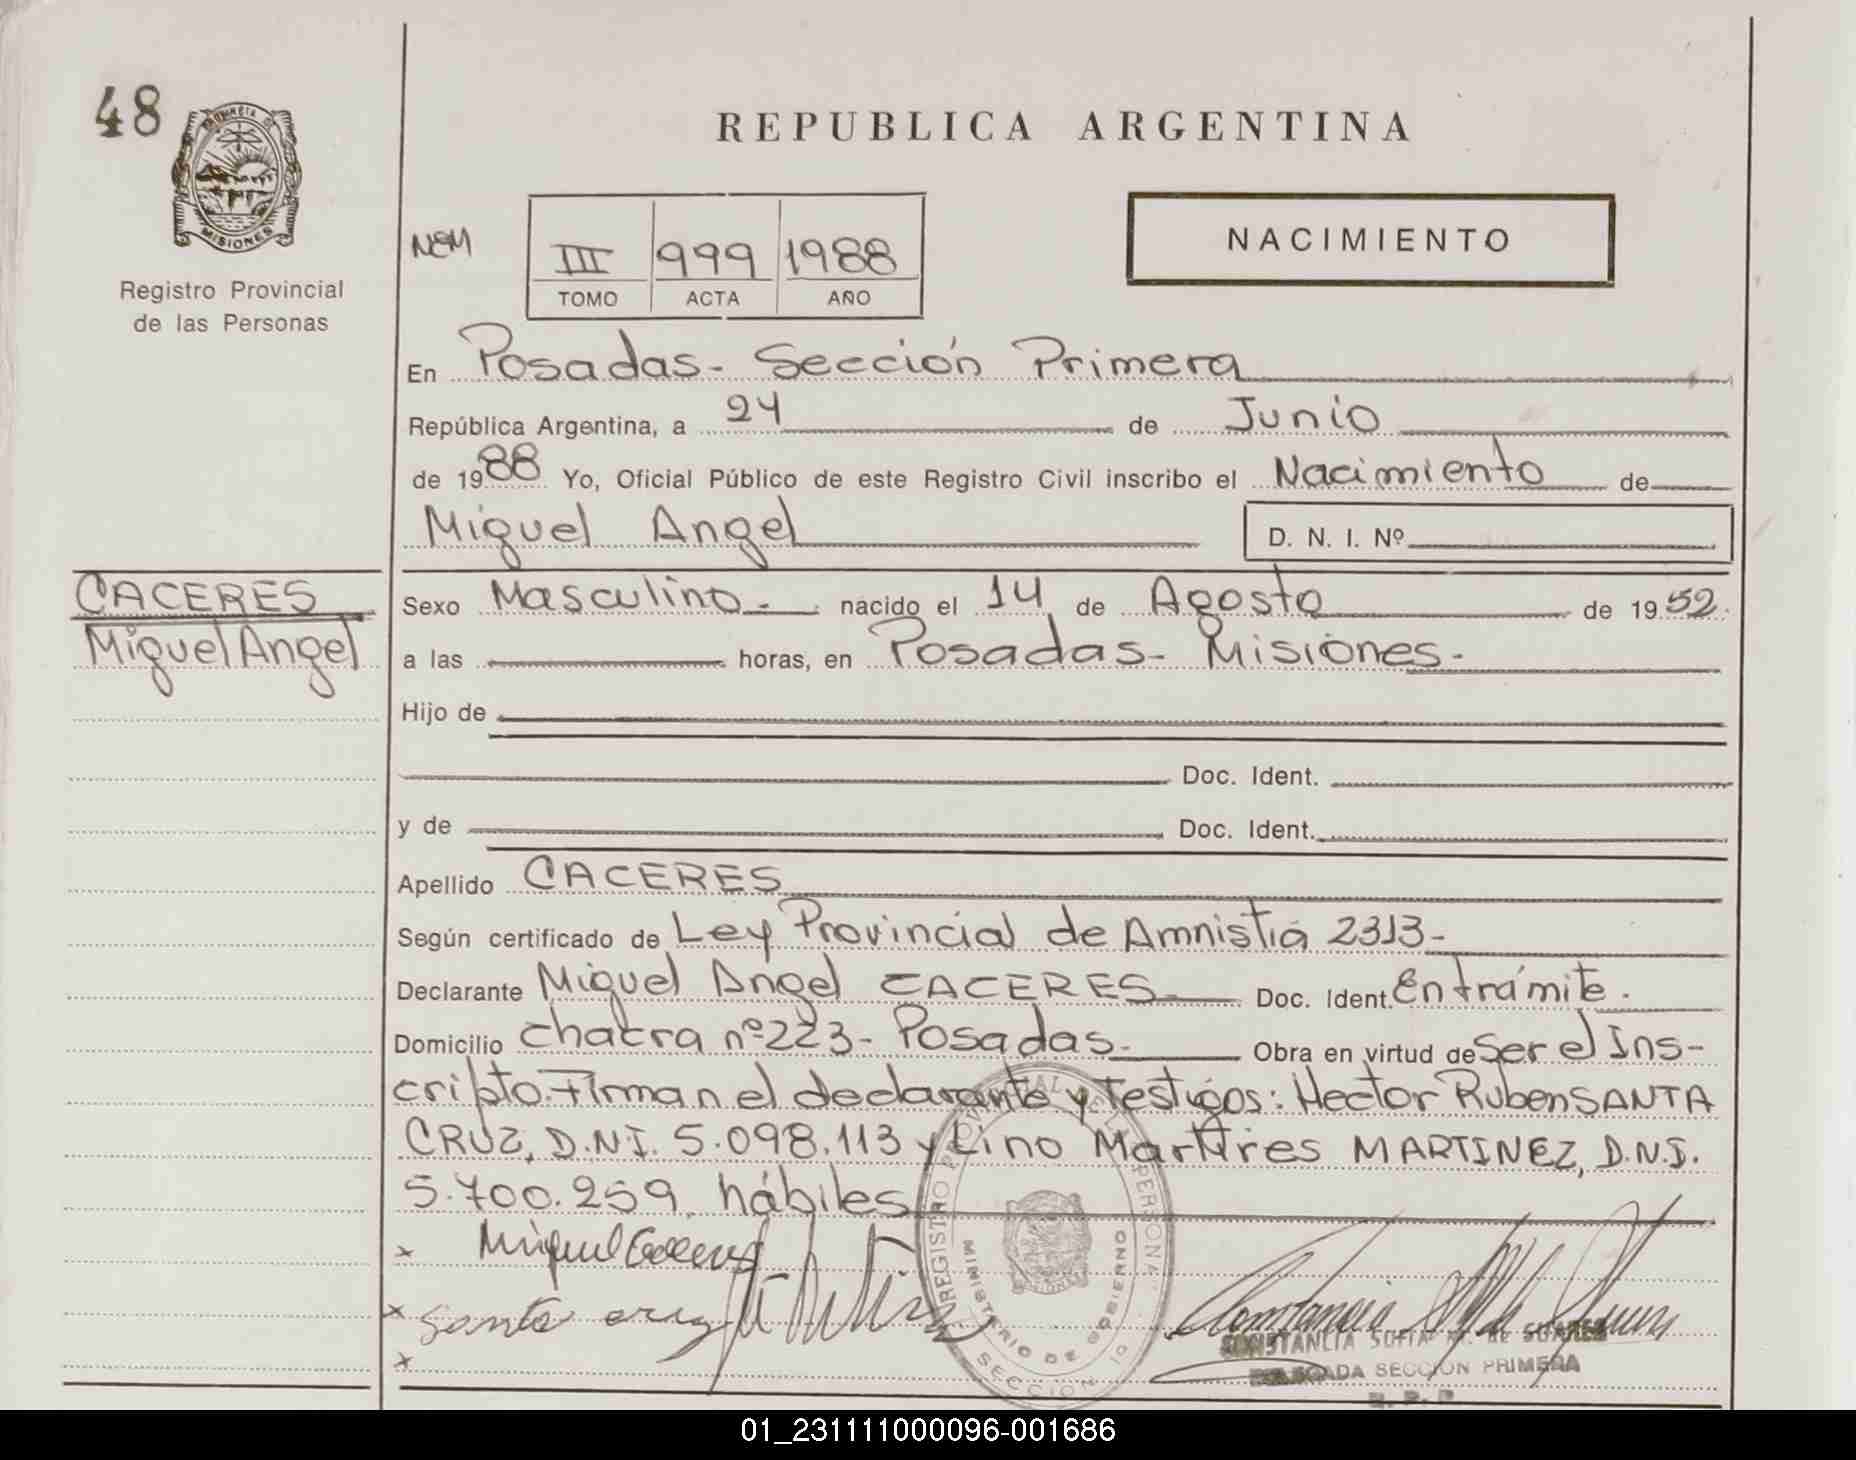 48
PROVINCIA DE
MISIONES
Registro Provincial
de las Personas
REPUBLICA ARGENTINA
NACIMIENTO
III 999 1988
TOMO ACTA AÑO
En Posadas- Sección Primera
República Argentina, a 24 de Junio
de 1988 Yo, Oficial Público de este Registro Civil inscribo el Nacimiento de
Miguel Angel D. N. I. Nº
CACERES
Miguel Angel
Sexo Masculino.- nacido el 14 de Agosto de 1952.
a las horas, en Posadas- Misiones.
Hijo de
Doc. Ident.
y de Doc. Ident.
Apellido CACERES
Según certificado de Ley Provincial de Amnistia 2313-
Declarante Miguel Angel CACERES Doc. Ident. En trámite.
Domicilio chacra nº 223- Posadas. Obra en virtud de Ser el Ins-
cripto. Firman el declarante y testigos: Hector Ruben SANTA
CRUZ, D.N.I. 5.098.113 y Lino Martires MARTINEZ, D.N.I.
5.700.259, hábiles
x Miguel Caceres
x Santa cruz
x
REGISTRO PROVINCIAL DE LAS PERSONAS
MINISTERIO DE GOBIERNO
SECCION 1a
CONSTANCIA SOFIA M. DE SUARES
DELEGADA SECCION PRIMERA
R. P. P.
01_231111000096-001686